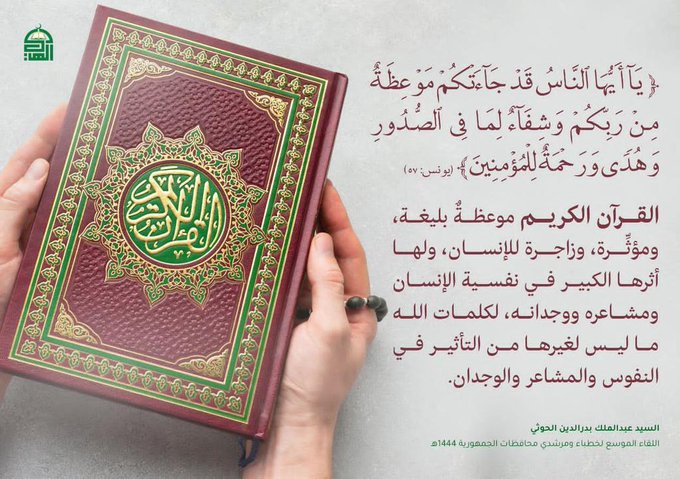 ﴿ يَا أَيُّهَا ٱلنَّاسُ قَدْ جَاءَتْكُمْ مَوْعِظَةٌ
مِنْ رَبِّكُمْ وَشِفَاءٌ لِمَا فِي ٱلصُّدُورِ
وَهُدًى وَرَحْمَةٌ لِلْمُؤْمِنِينَ ﴾ (يونس: ٥٧)
القرآن الكريم موعظةٌ بليغة،
ومؤثِّرة، وزاجرة للإنسان، ولها
أثرها الكبير في نفسية الإنسان
ومشاعره ووجدانه، لكلمات الله
ما ليس لغيرها من التأثير في
النفوس والمشاعر والوجدان.
السيد عبدالملك بدرالدين الحوثي
اللقاء الموسع لخطباء ومرشدي محافظات الجمهورية 1444هـ
القرآن الكريم